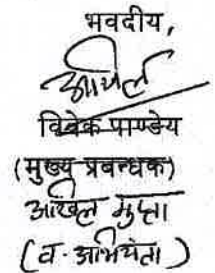 भवदीय,
अखिल
विवेक पाण्डेय
(मुख्य प्रबन्धक)
अखिल गुप्ता
(व. अभियंता)